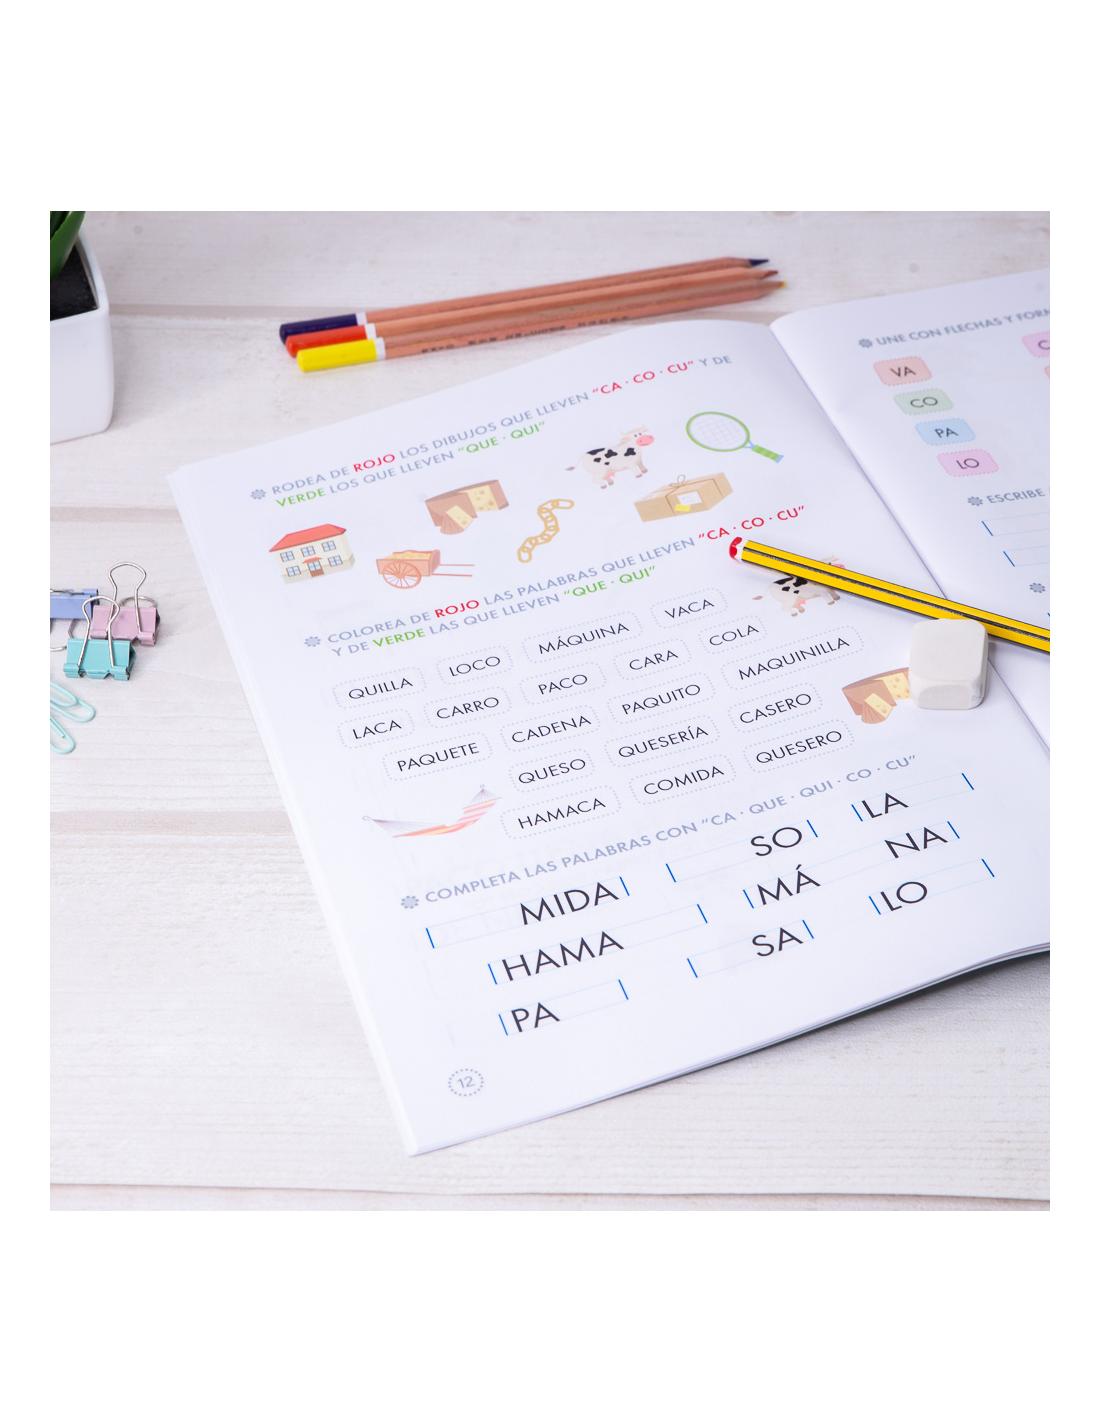 RODEA DE ROJO LOS DIBUJOS QUE LLEVEN "CA · CO · CU" Y DE
VERDE LOS QUE LLEVEN "QUE · QUI"
COLOREA DE ROJO LAS PALABRAS QUE LLEVEN "CA · CO · CU"
Y DE VERDE LAS QUE LLEVEN "QUE · QUI"
QUILLA LOCO MÁQUINA VACA
LACA CARRO PACO CARA COLA
PAQUETE CADENA PAQUITO MAQUINILLA
QUESO QUESERÍA CASERO
HAMACA COMIDA QUESERO
COMPLETA LAS PALABRAS CON "CA · QUE · QUI · CO · CU"
MIDA SO LA
HAMA MÁ NA
PA SA LO
12
UNE CON FLECHAS Y FORM
VA
CO
PA
LO
C
ESCRIBE